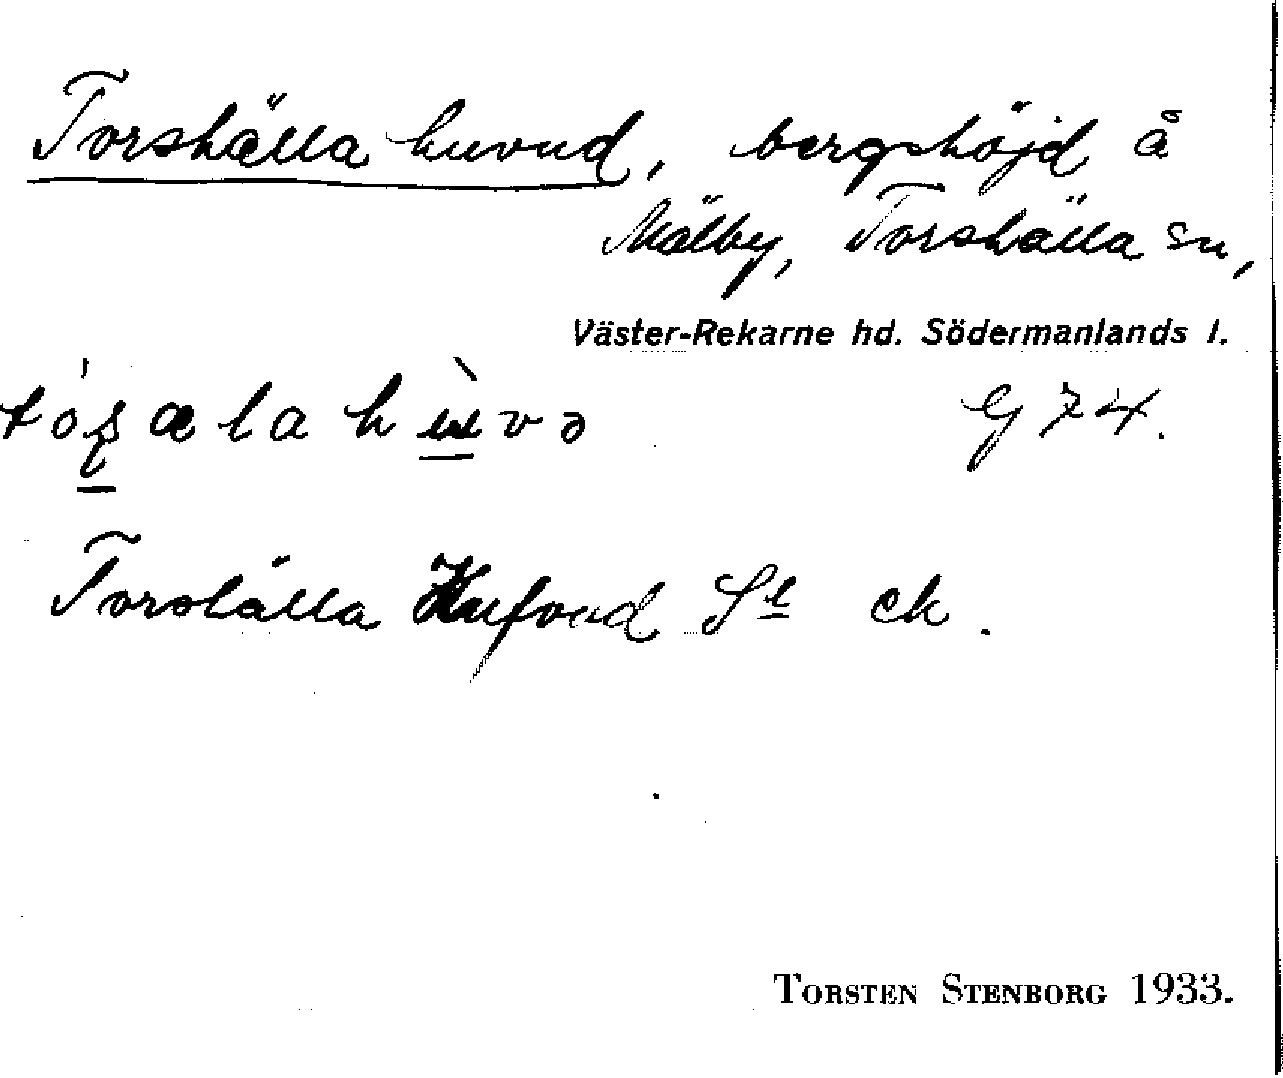 Torshälla huvud, bergshöjd å
Mälby, Torshälla sn,
Väster-Rekarne hd. Södermanlands l.
G 74.
Torshälla Hufvud St ck.
TORSTEN STENBORG 1933.